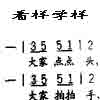 看样学样
一 | 35 51 | 12
大家 点点 头,
一 | 35 51 | 12
大家 拍拍 手,